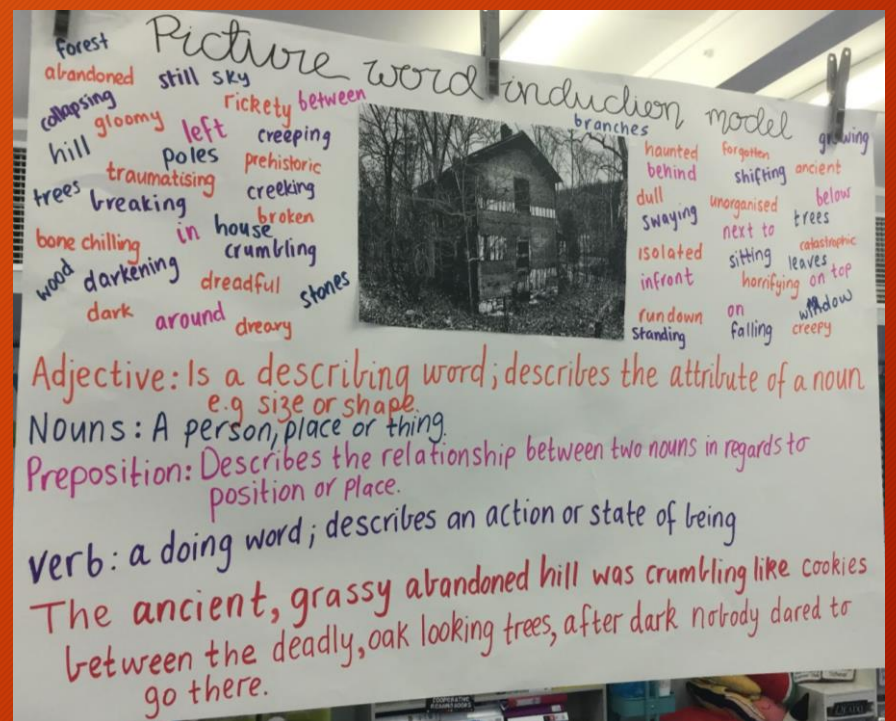 Picture word induction model
forest
abandoned still sky
collapsing gloomy rickety between
hill left creeping
poles prehistoric
trees traumatising creeking
breaking broken
bone chilling in house
crumbling
wood darkening dreadful stones
dark around dreary
branches growing
haunted forgotten
behind shifting ancient
dull unorganised below
swaying next to trees
isolated sitting leaves catastrophic
infront horrifying on top
rundown on window
standing falling creepy
Adjective: Is a describing word; describes the attribute of a noun
e.g size or shape.
Nouns: A person, place or thing.
Preposition: Describes the relationship between two nouns in regards to
position or place.
verb: a doing word; describes an action or state of being
The ancient, grassy abandoned hill was crumbling like cookies
between the deadly, oak looking trees, after dark nobody dared to
go there.